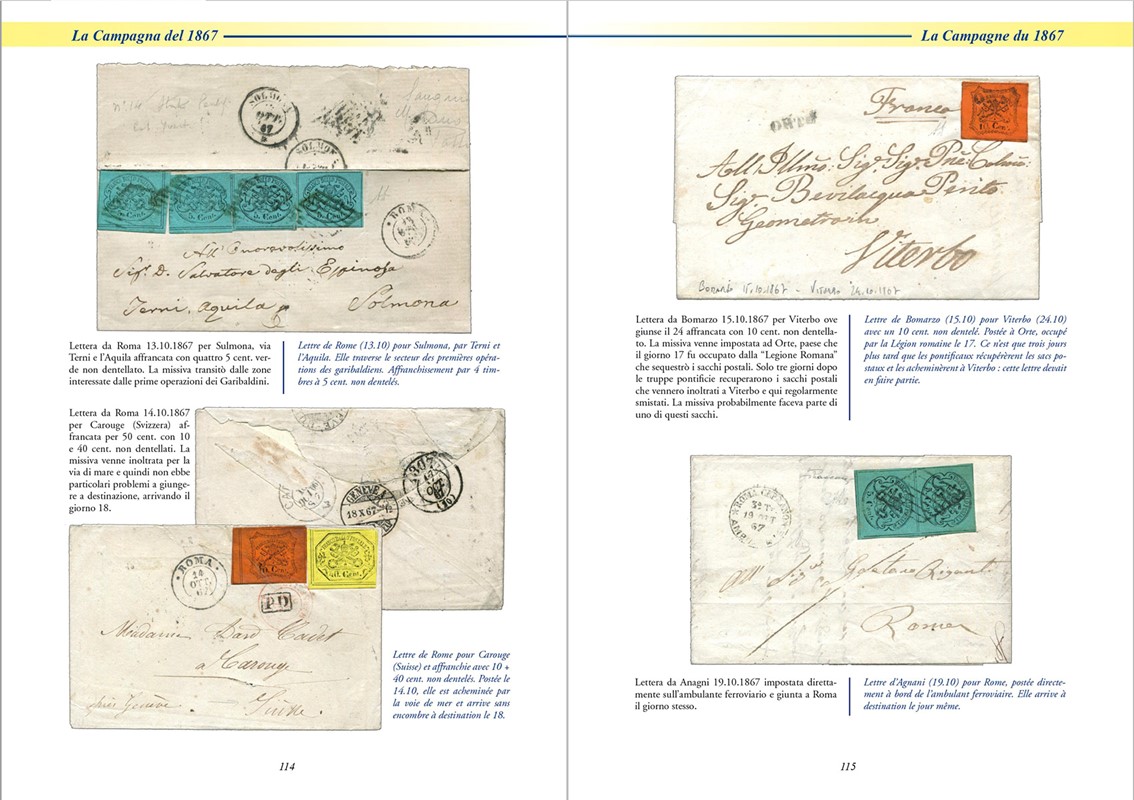 La Campagna del 1867
SOLMONA
OTT
67
SOLMON
5 Cent.
5 Cent.
5 Cent.
5 Cent.
ROMA
13
OTT
67
All' Onorevolissimo
Sigr. D. Salvatore degli Espinosa
Terni, Aquila p
Solmona
Lettera da Roma 13.10.1867 per Sulmona, via
Terni e l'Aquila affrancata con quattro 5 cent. ver-
de non dentellato. La missiva transitò dalle zone
interessate dalle prime operazioni dei Garibaldini.
Lettre de Rome (13.10) pour Sulmona, par Terni et
l'Aquila. Elle traverse le secteur des premières opéra-
tions des garibaldiens. Affranchissement par 4 tim-
bres à 5 cent. non dentelés.
Lettera da Roma 14.10.1867
per Carouge (Svizzera) af-
francata per 50 cent. con 10
e 40 cent. non dentellati. La
missiva venne inoltrata per la
via di mare e quindi non ebbe
particolari problemi a giunge-
re a destinazione, arrivando il
giorno 18.
GENEVE
18 X 67
ROMA
14
OTT
67
10 Cent.
40 Cent.
PD
Madame Dard Cadet
à Carouge
près Genève.
Suisse
Lettre de Rome pour Carouge
(Suisse) et affranchie avec 10 +
40 cent. non dentelés. Postée le
14.10, elle est acheminée par
la voie de mer et arrive sans
encombre à destination le 18.
114
La Campagne du 1867
Franca
10 Cent.
ORTE
All Illmo: Sigr. Sigr. Pne Colmo:
Sigr. Bevilacqua Perito
Geometra in
Viterbo
Bomarzo 15.10.1867 - Viterbo 24.10.1867
Lettera da Bomarzo 15.10.1867 per Viterbo ove
giunse il 24 affrancata con 10 cent. non dentella-
to. La missiva venne impostata ad Orte, paese che
il giorno 17 fu occupato dalla “Legione Romana”
che sequestrò i sacchi postali. Solo tre giorni dopo
le truppe pontificie recuperarono i sacchi postali
che vennero inoltrati a Viterbo e qui regolarmente
smistati. La missiva probabilmente faceva parte di
uno di questi sacchi.
Lettre de Bomarzo (15.10) pour Viterbo (24.10)
avec un 10 cent. non dentelé. Postée à Orte, occupé
par la Légion romaine le 17. Ce n'est que trois jours
plus tard que les pontificaux récupérèrent les sacs po-
staux et les acheminèrent à Viterbo : cette lettre devait
en faire partie.
19 OTT
67
Roma
Lettera da Anagni 19.10.1867 impostata diretta-
mente sull'ambulante ferroviario e giunta a Roma
il giorno stesso.
Lettre d'Agnani (19.10) pour Rome, postée directe-
ment à bord de l'ambulant ferroviaire. Elle arrive à
destination le jour même.
115